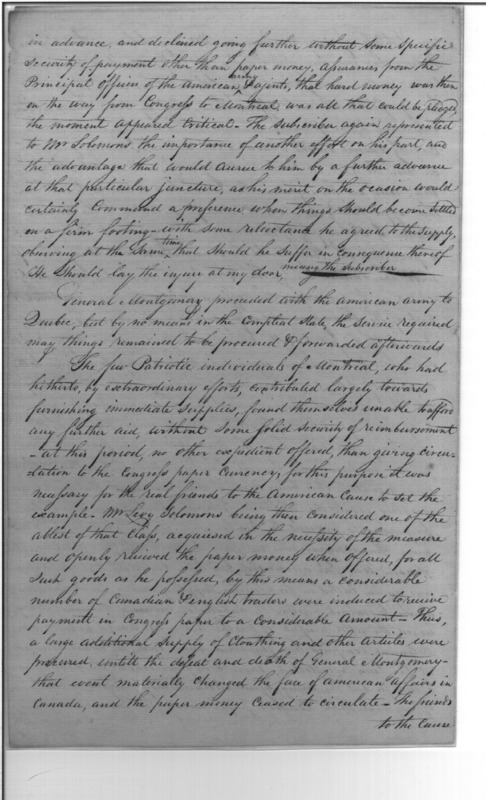 in advance, and declined going further without some specific
Security of payment other than paper money, assurances from the
Principal officers of the American army agents, that hard money was then
on the way from Congress to Montreal, was all that could be pledged,
the moment appeared Critical - The Subscriber again represented
to Mr Solomons the importance of another effort on his part, and
the advantage that would accrue to him by a further advance
at that particular juncture, as his merit on the occasion would
certainly Command a preference when things should become settled
on a firm footing - with some reluctance he agreed to the supply,
observing at the same time, that should he suffer in consequence thereof
He should lay the injure at my door, meaning the subscriber
General Montgomery proceeded with the american army to
Quebec, but by no means in the Compleat State, the Service required
may things remained to be procured & forwarded afterwards
The few Patriotic individuals of Montreal, who had
hitherto, by extraordinary efforts, contributed largely towards
furnishing immediate Supplies, found themselves unable to afford
any further aid, without some solid Security of reimbursement
- at this period, no other expedient offered, than giving circu-
-lation to the Congress paper Currency; for this purpose it was
necessary for the real friends to the American Cause to set the
example - Mr Levy Solomons being then considered one of the
ablest of that Class, acquiesced in the necessity of the measure
and openly received the paper money when offered, for all
Such goods as he possessed, by this means a considerable
number of Canadian & english traders were induced to receive
payment in Congress paper to a Considerable Amount - Thus,
a large additional Supply of Cloathing and other Articles were
procured, untill the defeat and death of General Montgomery -
that event materially changed the face of american affairs in
Canada, and the paper money Ceased to circulate - The friends
to the Cause